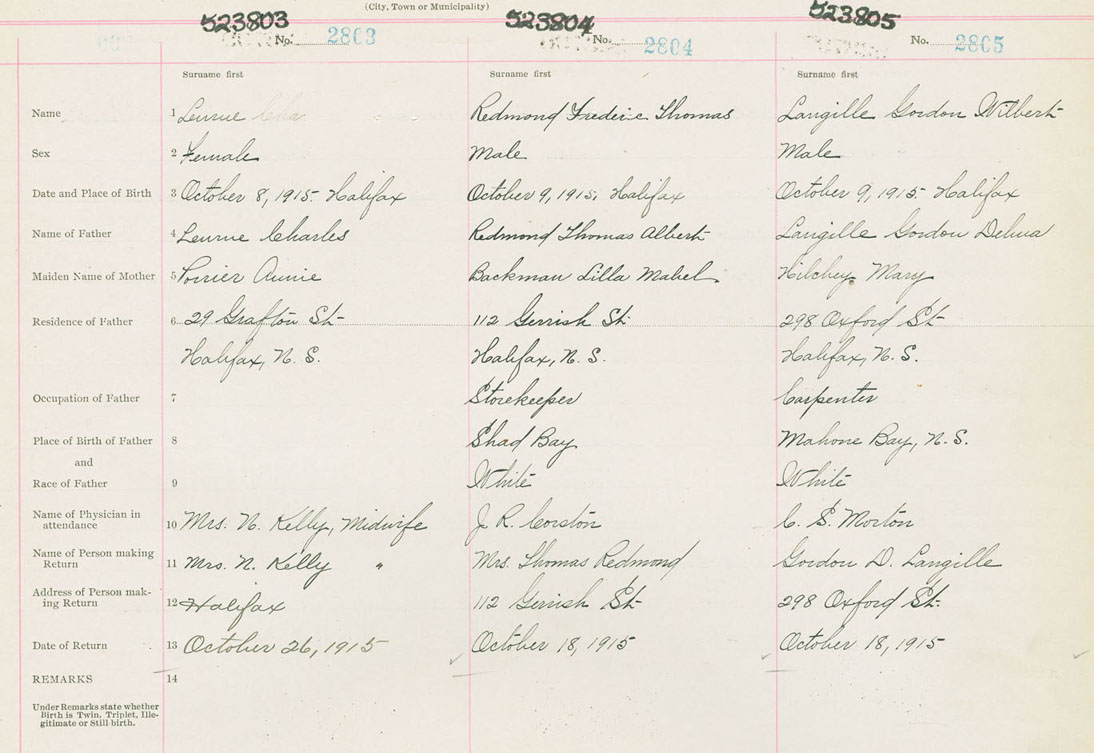 (City, Town or Municipality)
523803 523804 523805
No. 2803 No. 2804 No. 2805
Surname first Surname first Surname first
Name 1 Leurue Cha Redmond Frederic Thomas Langille Gordon Wilbert
Sex 2 Female Male Male
Date and Place of Birth 3 October 8, 1915. Halifax October 9, 1915, Halifax October 9, 1915. Halifax
Name of Father 4 Leurue Charles Redmond Thomas Albert Langille Gordon
Maiden Name of Mother 5 Poirier Annie Backman Lilla Mabel Hilchey Mary
Residence of Father 6 29 Grafton St- 112 Gerrish St. 298 Oxford St-
Halifax, N. S. Halifax, N. S. Halifax, N. S.
Occupation of Father 7 Storekeeper Carpenter
Place of Birth of Father 8 Shad Bay Mahone Bay, N. S.
and
Race of Father 9 White White
Name of Physician in
attendance 10 Mrs. N. Kelly, Midwife J. R. Corston C. S. Morton
Name of Person making
Return 11 Mrs. N. Kelly " Mrs. Thomas Redmond Gordon D. Langille
Address of Person mak-
ing Return 12 Halifax 112 Gerrish St- 298 Oxford St.
Date of Return 13 October 26, 1915 October 18, 1915 October 18, 1915
REMARKS 14
Under Remarks state whether
Birth is Twin, Triplet, Ille-
gitimate or Still-birth.